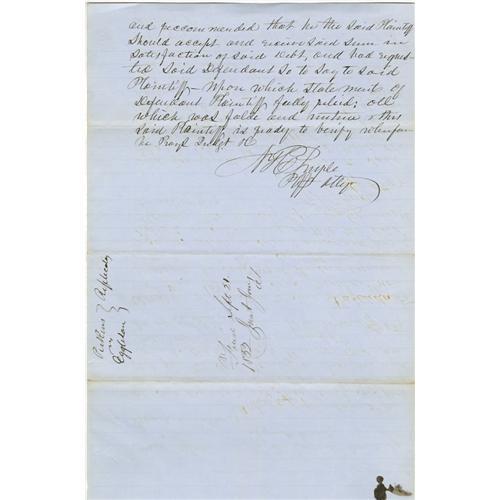 and reccommended that he the said Plaintiff
should accept and receive said sum in
satisfaction of said debt, and had reques
ted said Defendant so to say to said
Plaintiff Upon which statement of
Defendant Plaintiff fully relied; all
which was false and untrue & this
said Plaintiff is ready to verify wherefore
he Prays Judgt &c
Plff atty
Perkins } Replication
vs }
Eggleston }